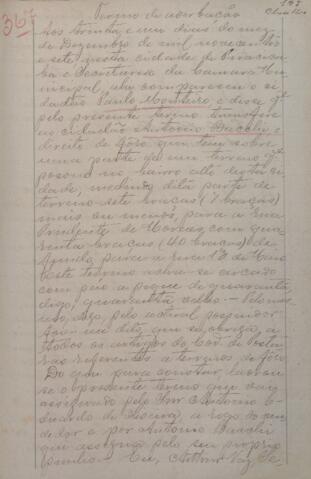 367
Termo de averbação
Aos trinta e um dias do mez
de Dezembro de mil novecentos
e sete nesta cidade de Piracica
ba e Secretaria da Camara Mu
nicipal, ahi compareceu o ci
dadão Paulo Monteiro, e disse q'
pelo presente termo transfere
ao cidadão Antonio Bacchi o
direito de fôro que tem sobre
uma parte de um terreno q'
possue no bairro alto desta ci
dade, medindo dita parte de
terreno sete braças (7 braças)
mais ou menos, para a Rua
Prudente de Moraes, com qua
renta braças (40 braças) de
fundo, para a Rua 13 de Maio
Este terreno acha-se cercado
com
digo, quarenta
digo pelo actual
que se obriga, a
todos os artigos do Cod. de Postu
ras referentes a terrenos de fôro
Do que para constar, lavrou
se o presente termo que vae
assignado pelo Snr Antonio E
duardo de a rogo do ven
dedor e por Antonio Bacchi
que assigna pelo seu proprio
punho. Eu, Arthur Vaz